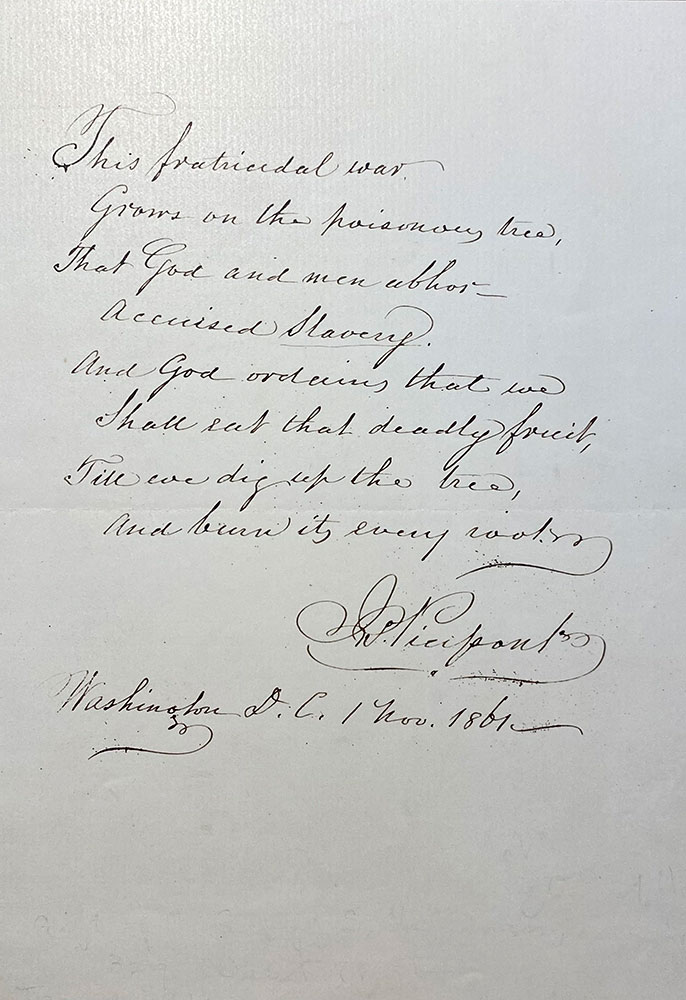 This fratricidal war
Grows on the poisonous tree,
That God and men abhor—
Accursed Slavery.
And God ordains that we
Shall eat that deadly fruit,
Till we dig up the tree,
And burn its every root.
Jno. Pierpont
Washington D. C. 1 Nov. 1861.